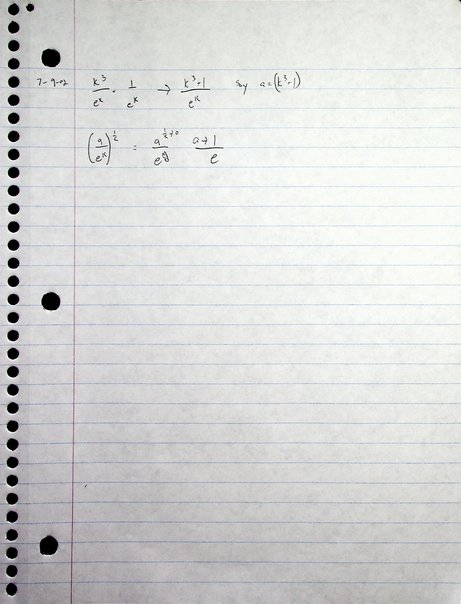 7-9-02 k³/eᵏ · 1/eᵏ → k³-1/eᵏ Say a=(k³-1)
(a/eᵏ)^½ = a^(½+0)/e a+1/e